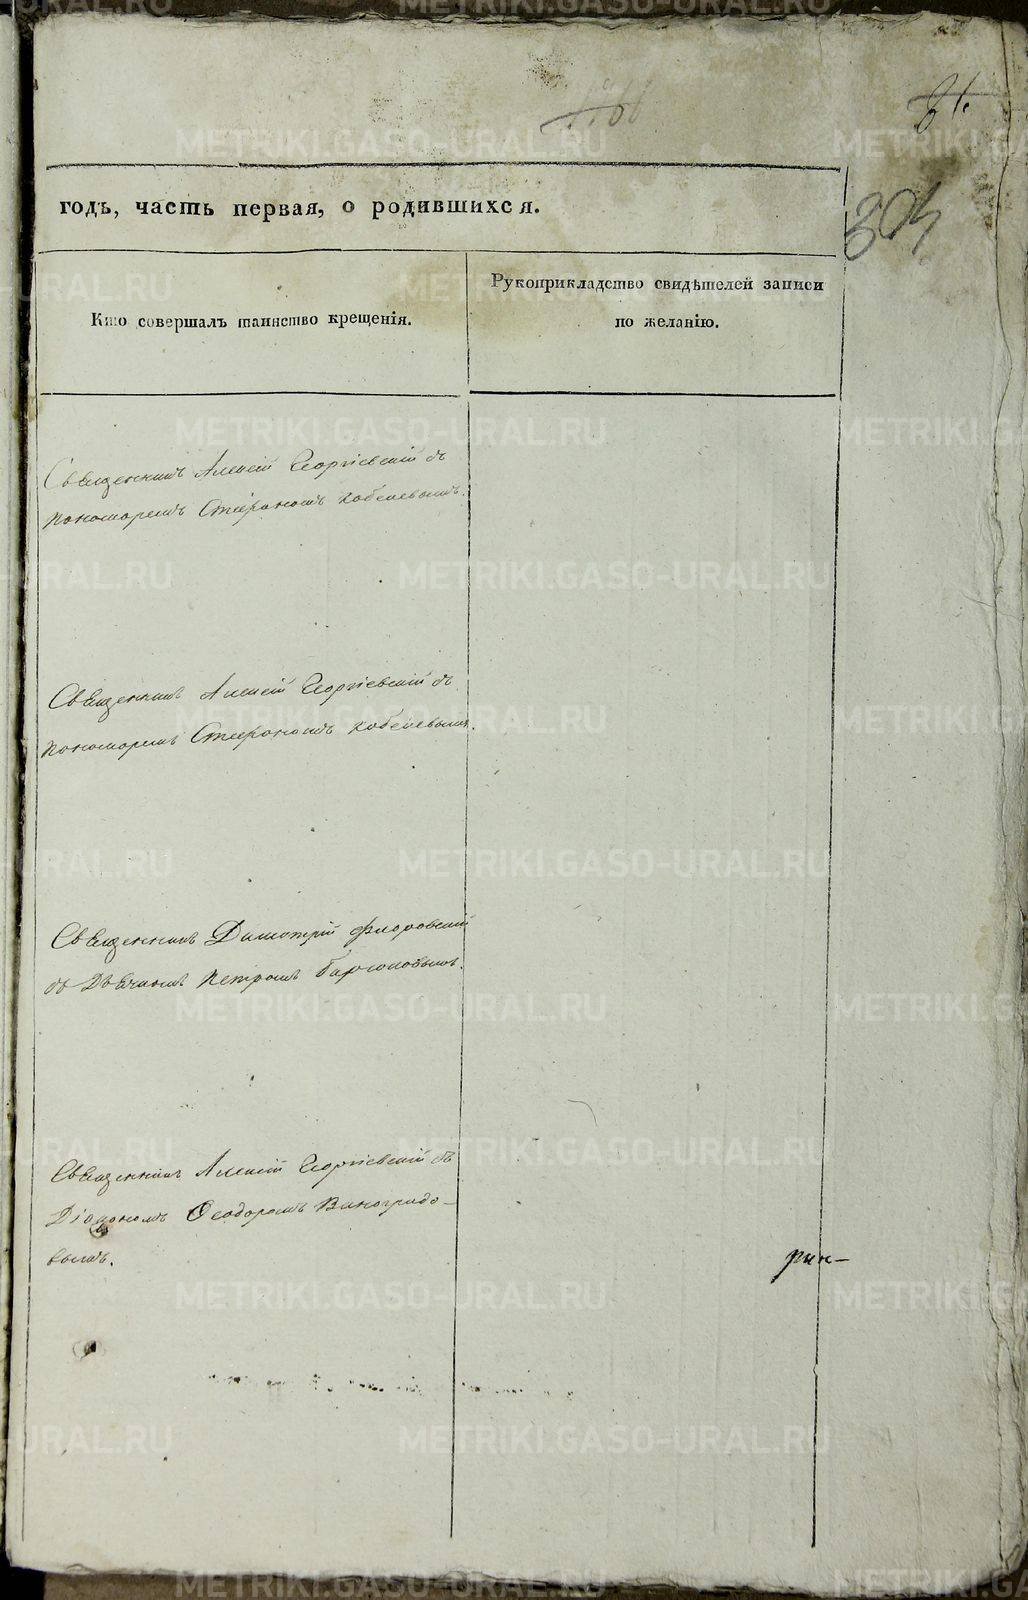 304
годъ, часть первая, о родившихся.
Кто совершалъ таинство крещенія.
Рукоприкладство свидѣтелей записи
по желанію.
Священникъ Алексій Георгіевскій съ
пономаремъ Стефаномъ Кобелевымъ.
Священникъ Алексій Георгіевскій съ
пономаремъ Стефаномъ Кобелевымъ.
Священникъ Димитрій Флоровскій
съ Дьячкомъ Петромъ
Священникъ Алексій Георгіевскій съ
Діакономъ Ѳеодоромъ Виноградо-
вымъ.
METRIKI.GASO-URAL.RU